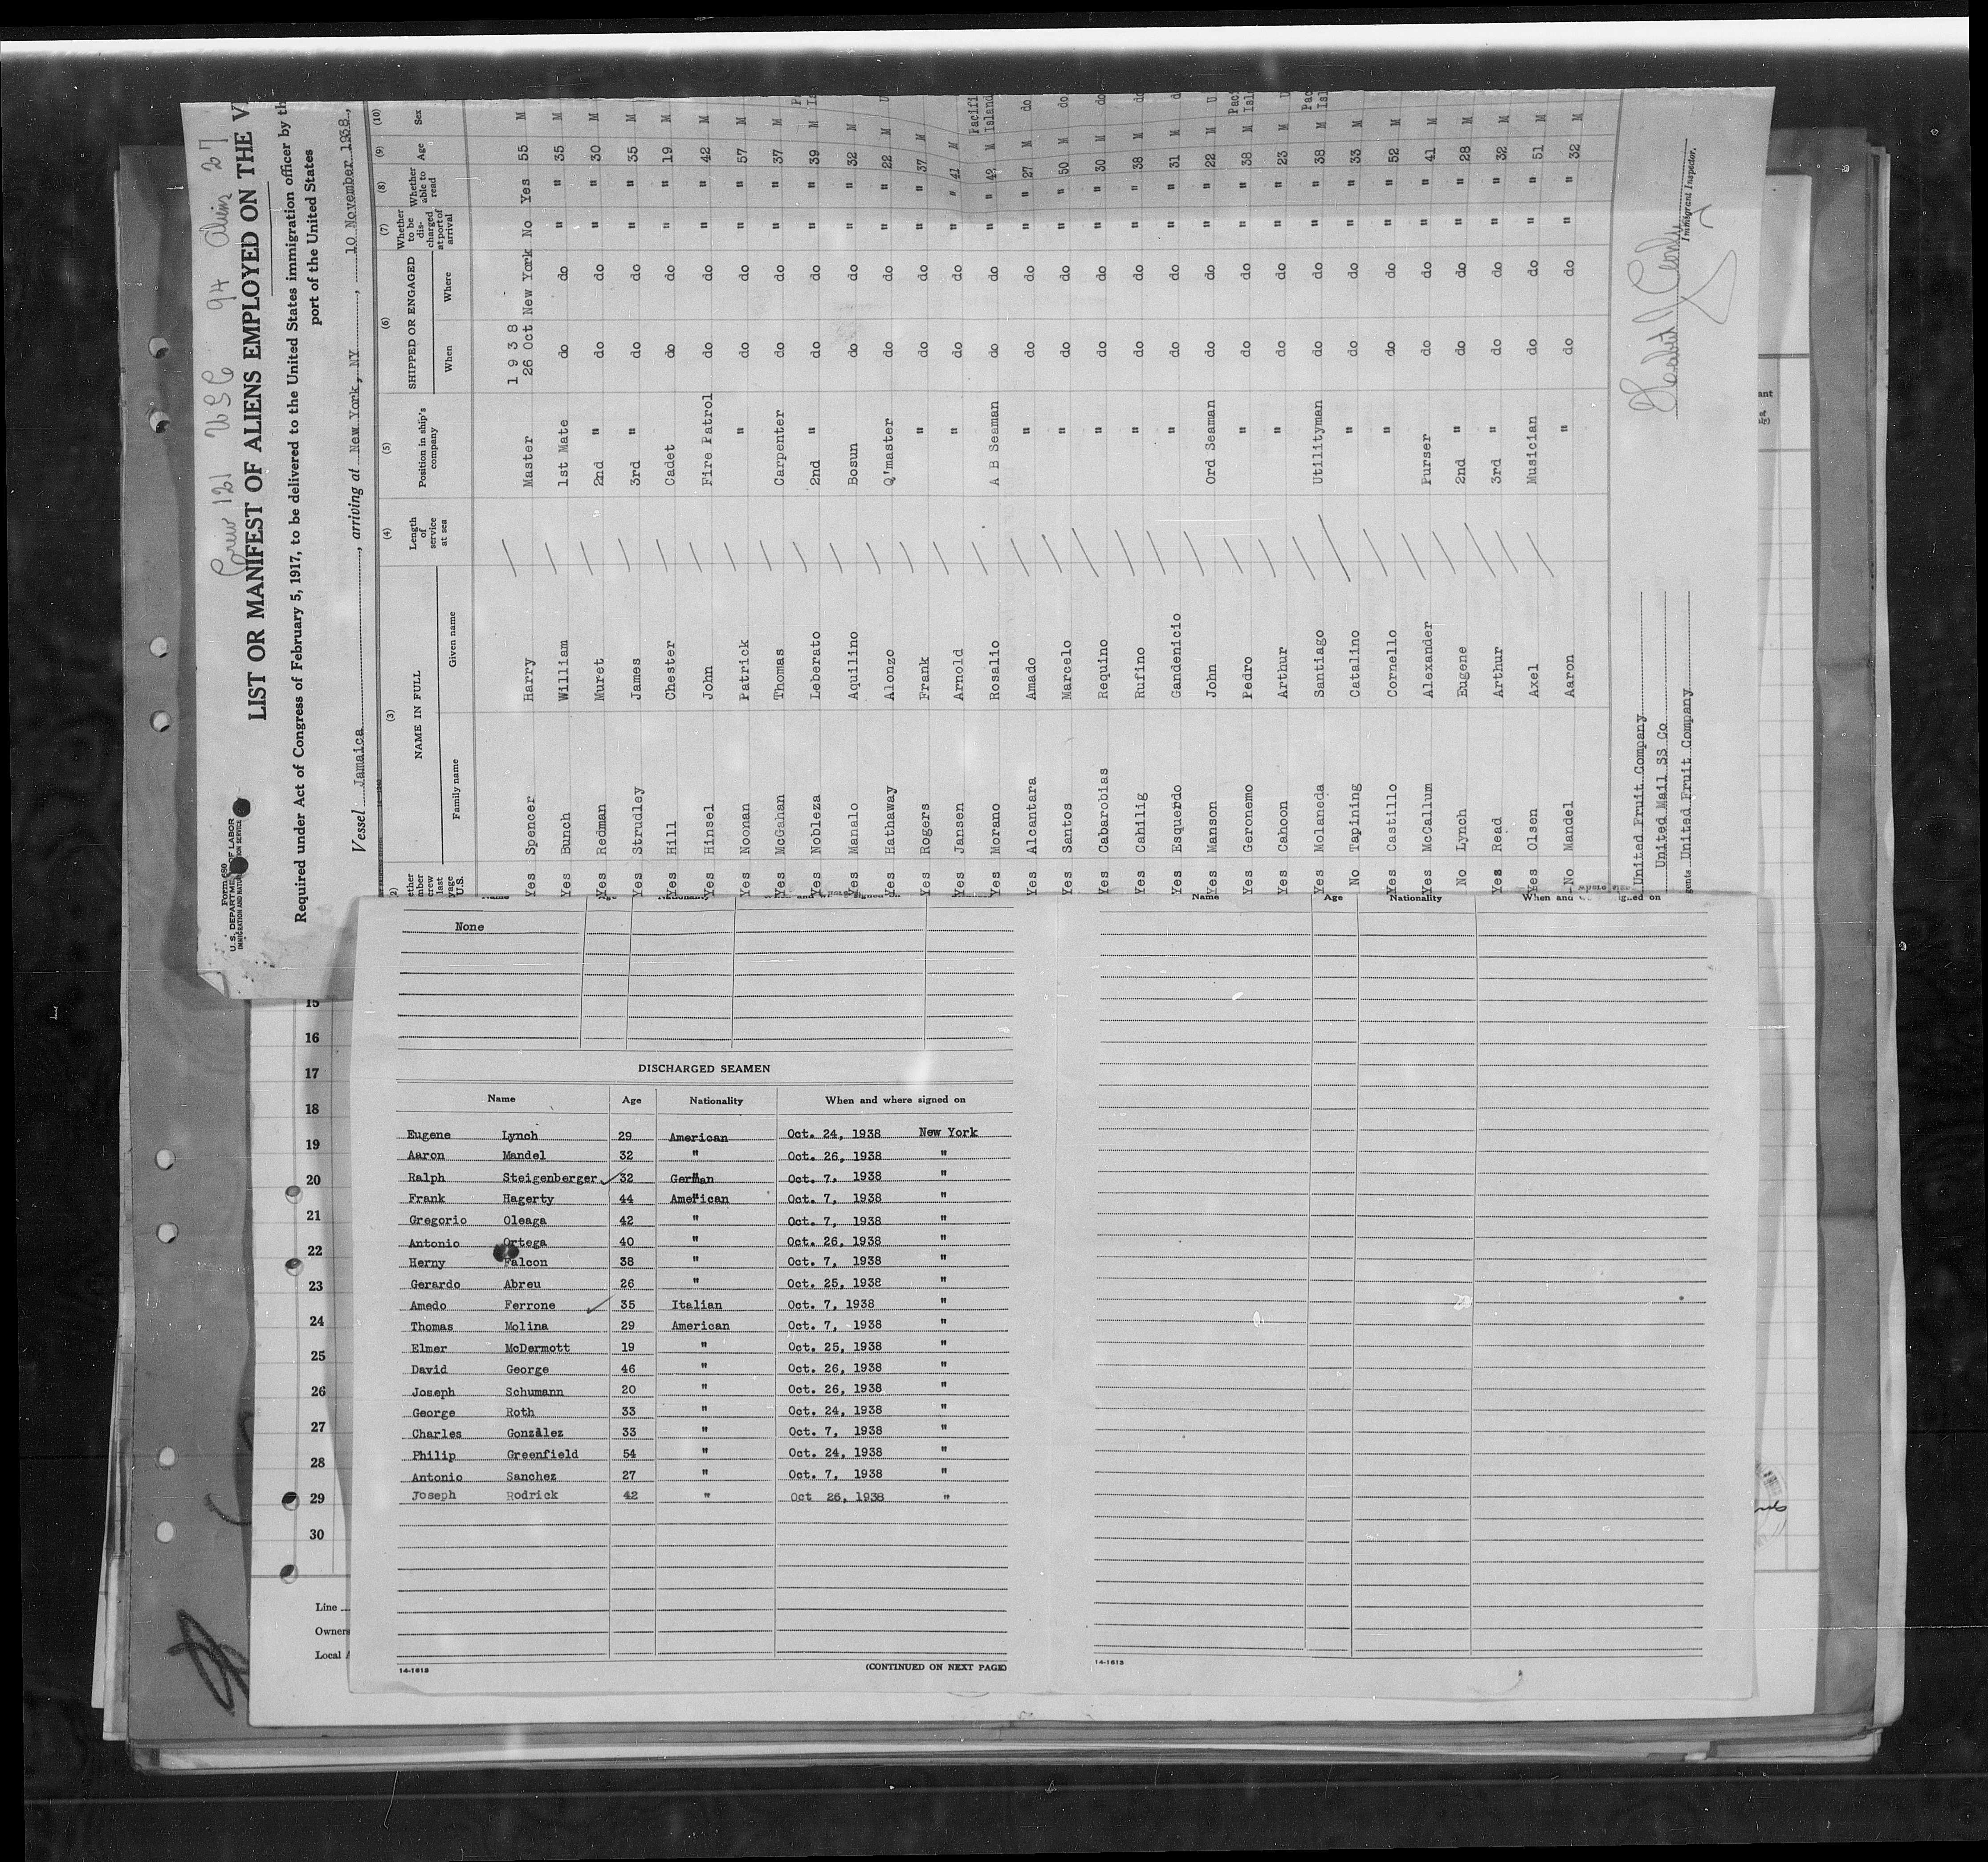 Crew 121 USC 94 Aliens 27
Form 680
U.S. DEPARTMENT OF LABOR
IMMIGRATION AND NATURALIZATION SERVICE
LIST OR MANIFEST OF ALIENS EMPLOYED ON THE
Required under Act of Congress of February 5, 1917, to be delivered to the United States immigration officer by
port of the United States
Vessel Jamaica, arriving at New York, NY, 10 November 1938,
(3) (4) (5) (6) (7) (8) (9) (10)
NAME IN FULL Length of service at sea Position in ship's company SHIPPED OR ENGAGED Whether to be discharged at port of arrival Whether able to read Age Sex
Family name Given name When Where
1938
Yes Spencer Harry Master 26 Oct New York No Yes 55 M
Yes Bunch William 1st Mate do do " " 35 M
Yes Redman Muret 2nd " do do " " 30 M
Yes Strudley James 3rd " do do " " 35 M
Yes Hill Chester Cadet do do " " 19 M
Yes Hinsel John Fire Patrol do do " " 42 M
Yes Noonan Patrick " do do " " 57 M
Yes McGahan Thomas Carpenter do do " " 37 M
Yes Nobleza Leberato 2nd " do do " " 39 M
Yes Manalo Aquilino Bosun do do " " 32 M
Yes Hathaway Alonzo Q'master do do " " 22 M
Yes Rogers Frank " do do " " 37 M
Yes Jansen Arnold " do do " " 41 M
Yes Morano Rosalio A B Seaman do do " " 42 M
Yes Alcantara Amado " do do " " 27 M do
Yes Santos Marcelo " do do " " 50 M do
Yes Cabarobias Requino " do do " " 30 M do
Yes Cahilig Rufino " do do " " 38 M do
Yes Esquerdo Gandenicio " do do " " 31 M
Yes Manson John Ord Seaman do do " " 22 M
Yes Geronemo Pedro " do do " " 38 M
Yes Cahoon Arthur " do do " " 23 M
Yes Molaneda Santiago Utilityman do do " " 38 M
No Tapining Catalino " do do " " 33 M
Yes Castillo Cornello " do do " " 52 M
Yes McCallum Alexander Purser do do " " 41 M
No Lynch Eugene 2nd " do do " " 28 M
Yes Read Arthur 3rd " do do " " 32 M
Yes Olsen Axel Musician do do " " 51 M
No Mandel Aaron " do do " " 32 M
United Fruit Company
United Mail SS Co
United Fruit Company
Immigrant Inspector.
None
DISCHARGED SEAMEN
Name Age Nationality When and where signed on
Eugene Lynch 29 American Oct. 24, 1938 New York
Aaron Mandel 32 " Oct. 26, 1938 "
Ralph Steigenberger 32 German Oct. 7, 1938 "
Frank Hagerty 44 American Oct. 7, 1938 "
Gregorio Oleaga 42 " Oct. 7, 1938 "
Antonio Ortega 40 " Oct. 26, 1938 "
Herny Falcon 38 " Oct. 7, 1938 "
Gerardo Abreu 26 " Oct. 25, 1938 "
Amedo Ferrone 35 Italian Oct. 7, 1938 "
Thomas Molina 29 American Oct. 7, 1938 "
Elmer McDermott 19 " Oct. 25, 1938 "
David George 46 " Oct. 26, 1938 "
Joseph Schumann 20 " Oct. 26, 1938 "
George Roth 33 " Oct. 24, 1938 "
Charles Gonzalez 33 " Oct. 7, 1938 "
Philip Greenfield 54 " Oct. 24, 1938 "
Antonio Sanchez 27 " Oct. 7, 1938 "
Joseph Rodrick 42 " Oct 26, 1938 "
14-1613 (CONTINUED ON NEXT PAGE)
Name Age Nationality When and signed on
14-1613
15
16
17
18
19
20
21
22
23
24
25
26
27
28
29
30
Line
Owners
Local